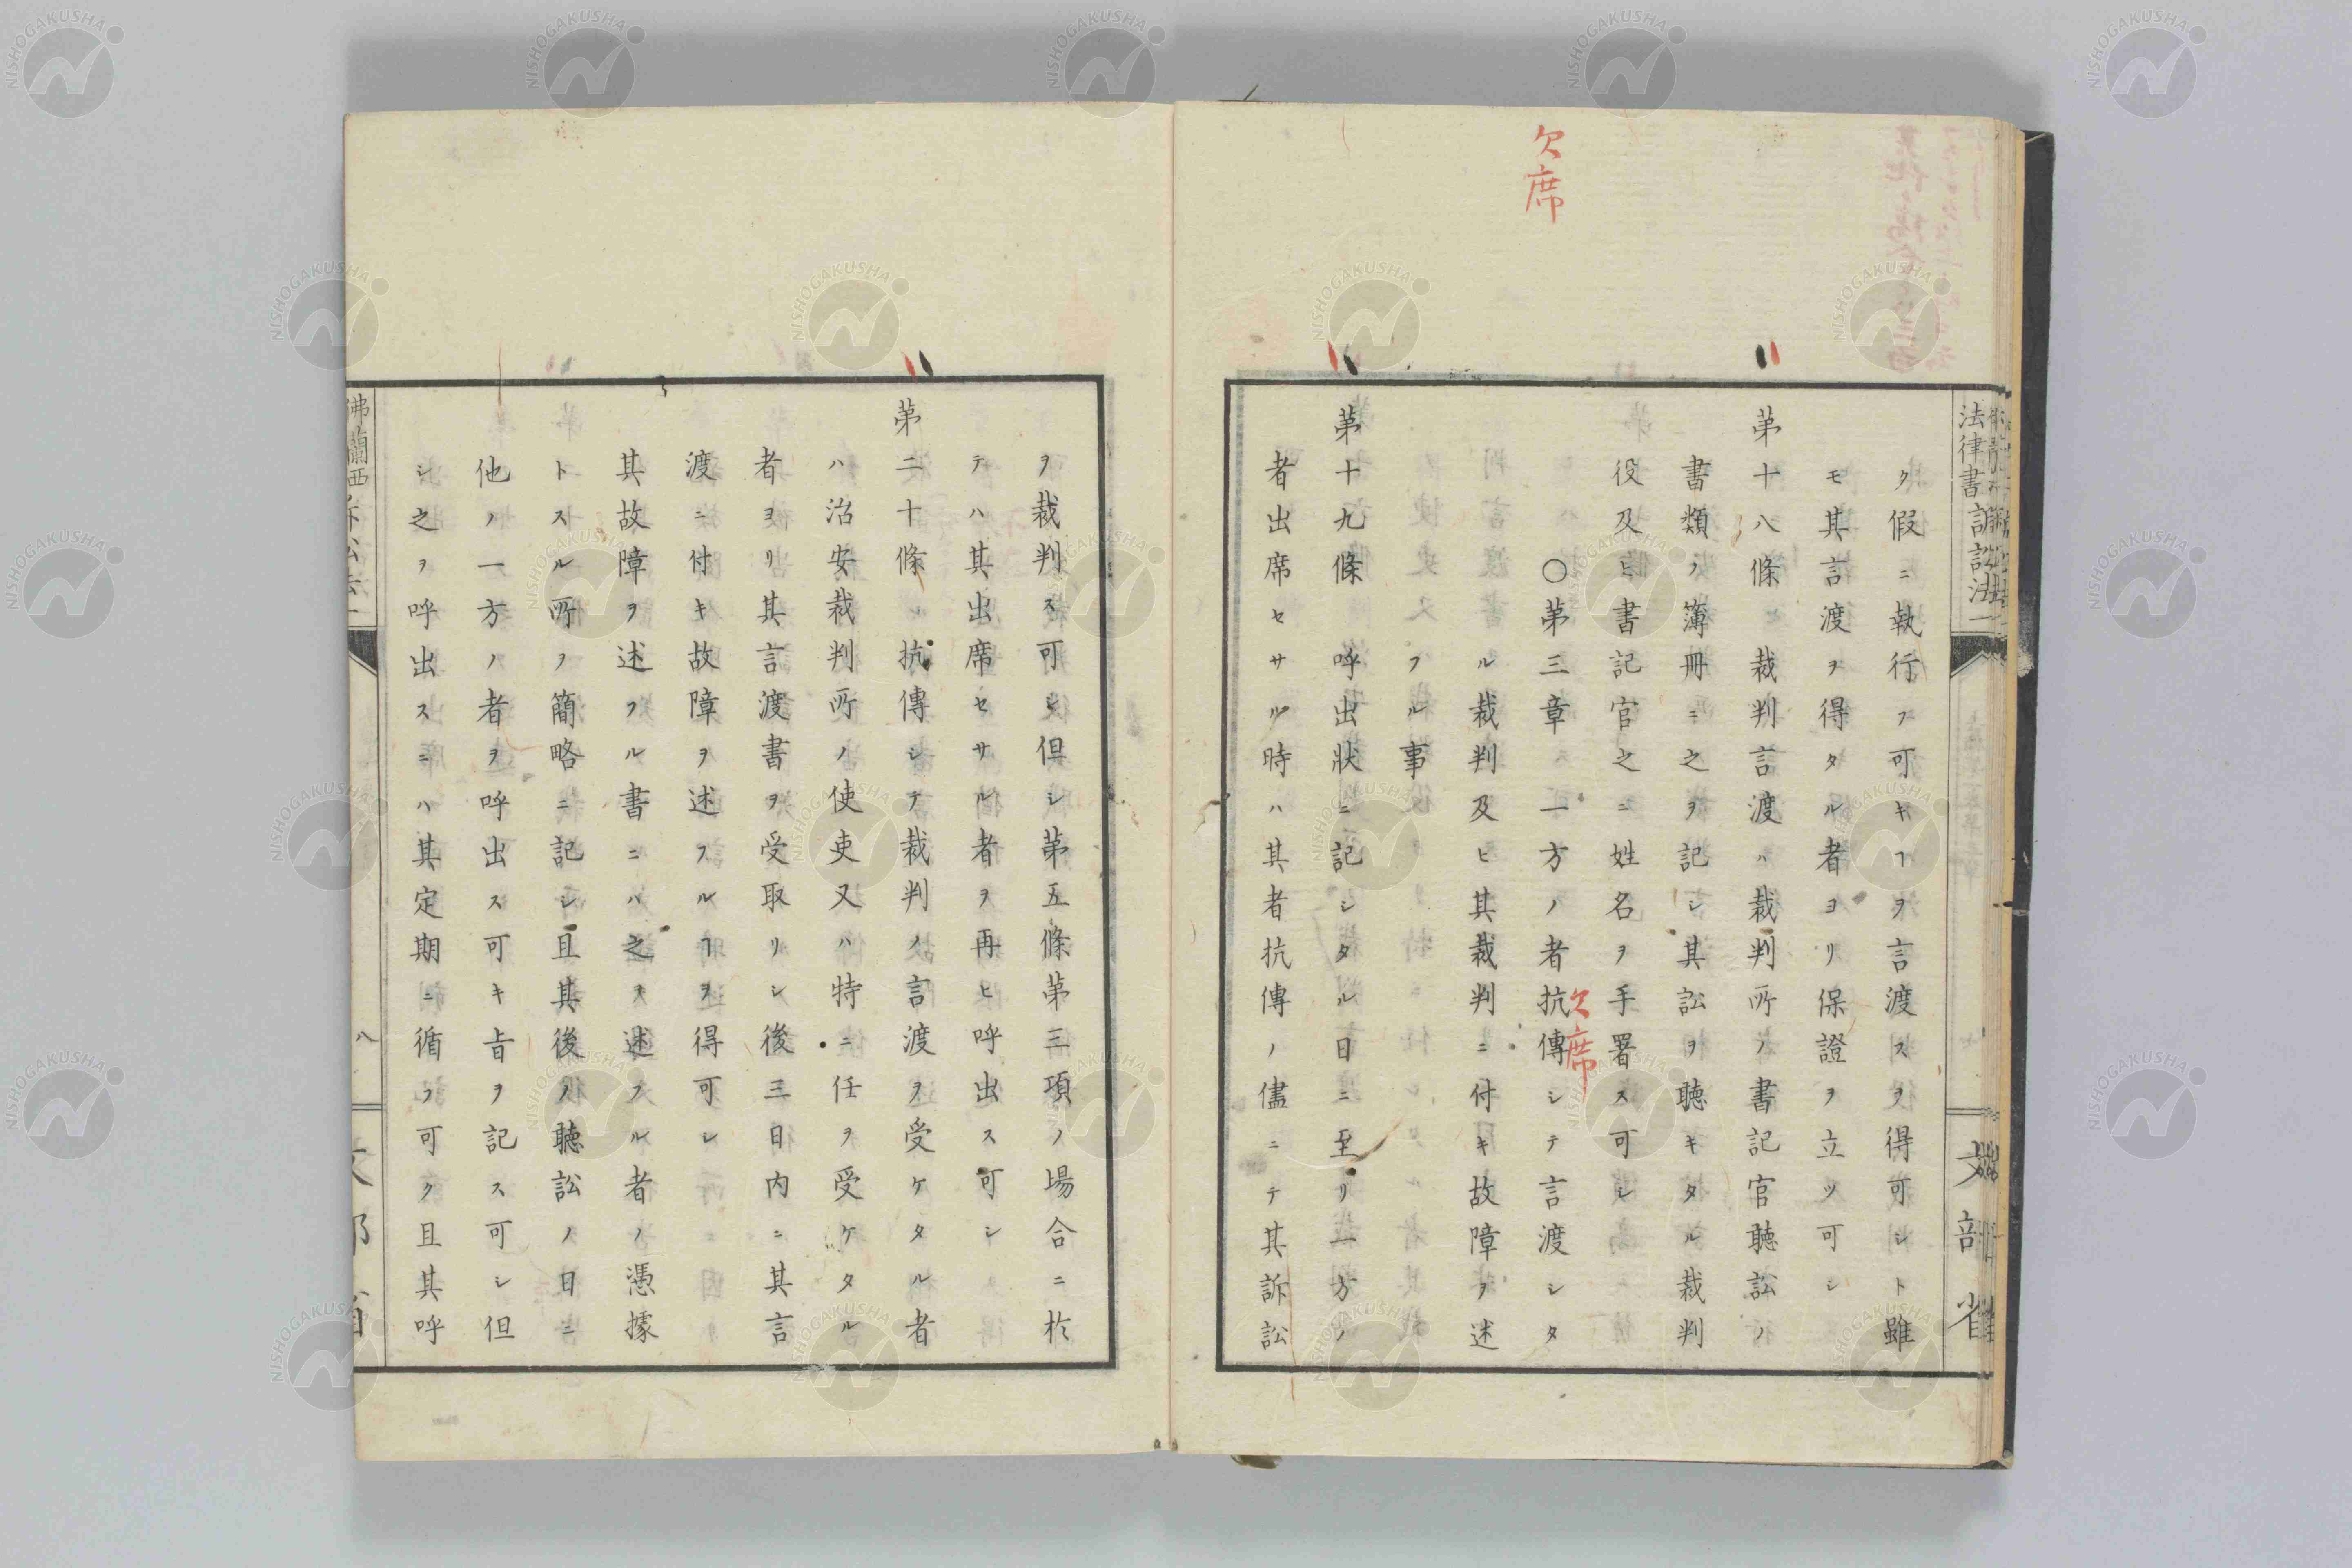 欠席
法律書 訴訟法一
文部省
ク假ニ執行フ可キヿヲ言渡スヲ得可シト雖
モ其言渡ヲ得タル者ヨリ保證ヲ立ツ可シ
第十八條 裁判言渡ハ裁判所ノ書記官聴訟ノ
書類ノ簿冊ニ之ヲ記シ其訟ヲ聴キタル裁判
役及ヒ書記官之ニ姓名ヲ手署ス可シ
〇第三章 一方ノ者抗傳シテ言渡シタ
欠席
ル裁判及ヒ其裁判ニ付キ故障ヲ述
フル事
第十九條 呼出狀ニ記シタル日ニ至リ一方ノ
者出席セサル時ハ其者抗傳ノ儘ニテ其訴訟
ヲ裁判ス可シ但シ第五條第三項ノ場合ニ於
テハ其出席セサル者ヲ再ヒ呼出ス可シ
第二十條 抗傳シテ裁判ノ言渡ヲ受ケタル者
ハ治安裁判所ノ使吏又ハ特ニ任ヲ受ケタル
者ヨリ其言渡書ヲ受取リシ後三日内ニ其言
渡ニ付キ故障ヲ述フルヿヲ得可シ
其故障ヲ述フル書ニハ之ヲ述フル者ノ憑據
トスル所ヲ簡略ニ記シ且其後ノ聴訟ノ日ニ
他ノ一方ノ者ヲ呼出ス可キ旨ヲ記ス可シ但
シ之ヲ呼出スニハ其定期ニ循フ可ク且其呼
佛蘭西訴訟法一
八
文部省
NISHOGAKUSHA